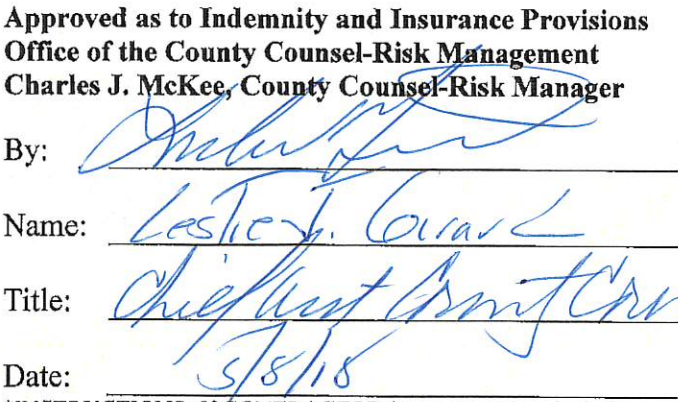 Approved as to Indemnity and Insurance Provisions
Office of the County Counsel-Risk Management
Charles J. McKee, County Counsel-Risk Manager
By:
Name: Leslie J. Girard
Title: Chief Asst County
Date: 5/8/18